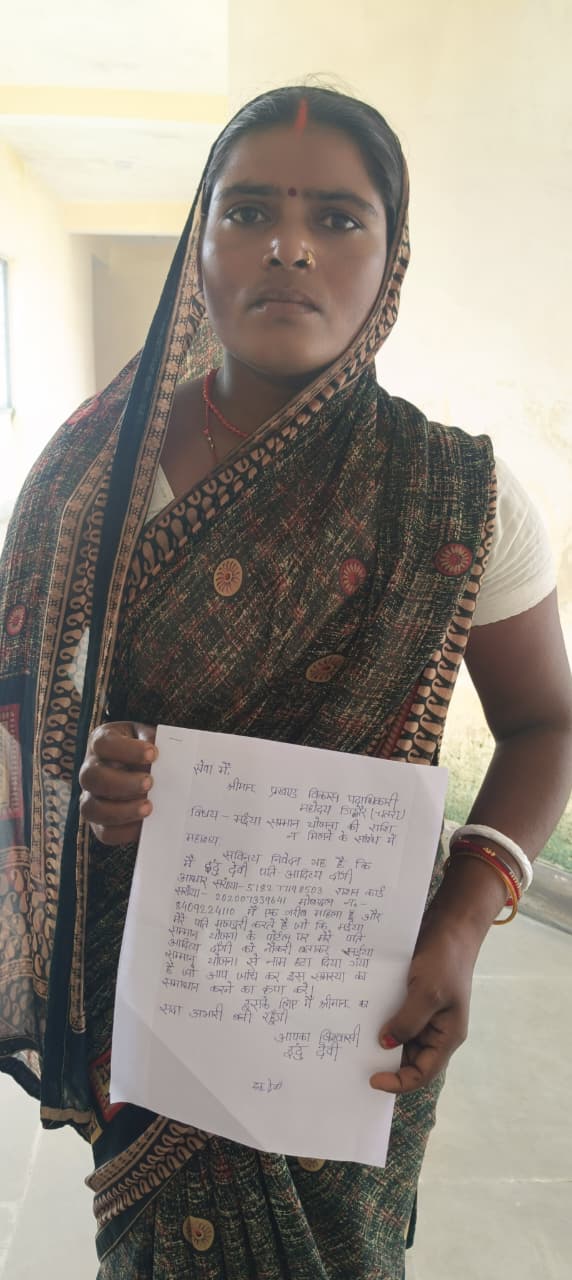 सेवा में,
श्रीमान प्रखण्ड विकास पदाधिकारी
महोदय
विषय - मईया सामान योजना की राशि
न मिलने के संबंध में
महाशय
सविनय निवेदन यह है, कि
मैं इंदु देवी पति आदित्य दाँगी
आधार संख्या- 518277498503 राशन कार्ड
संख्या- 202007339641 मोबाइल नं.-
8409224110 मैं एक गरीब महिला हूँ और
मेरे पति मजदुरी करते हैं जो कि मईया
सम्मान योजना के पोर्टल पर मेरे पति
आदित्य दाँगी को नौकरी बताकर मईया
सम्मान योजना से नाम हटा दिया गया
है जो आप जाँच कर इस समस्या का
समाधान करने का कृपा करें।
इसके लिए मैं श्रीमान का
सदा आभारी बनी रहूँगी
आपका विश्वासी
इंदु देवी
इंदु देवी